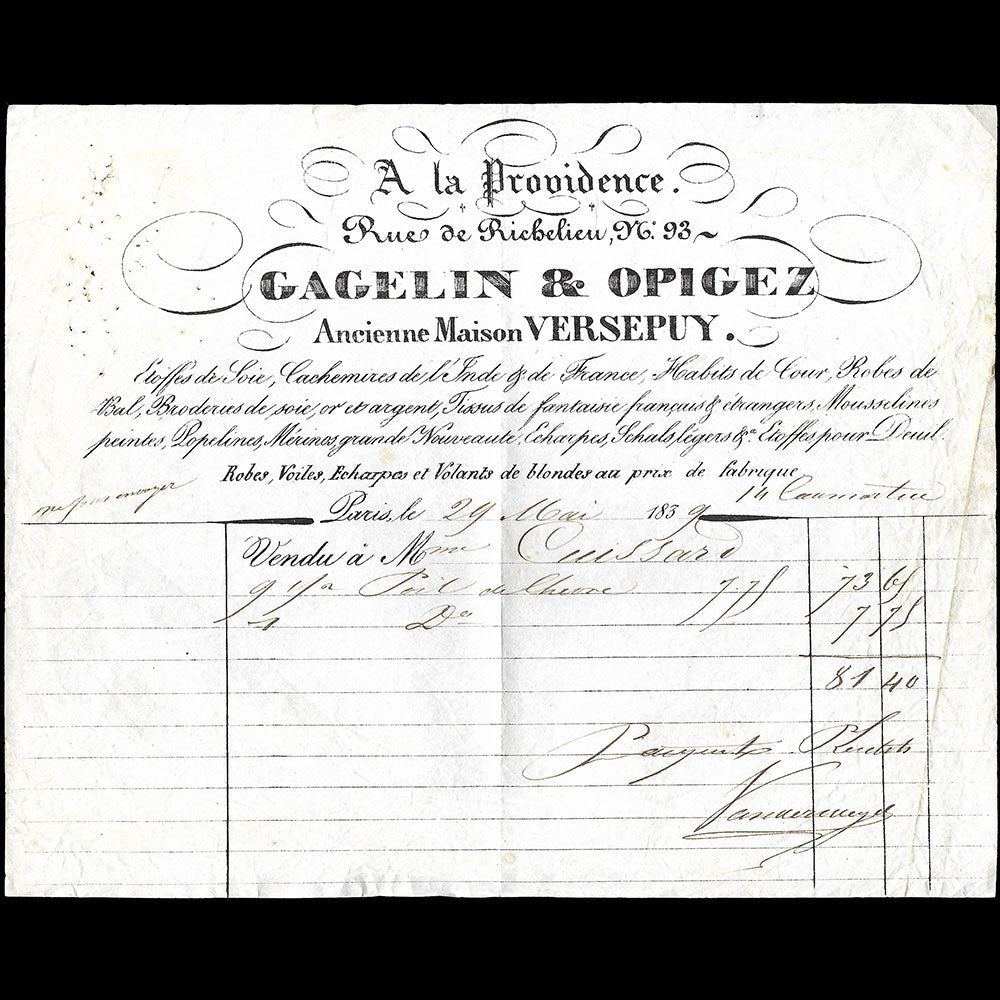 A la Providence.
Rue de Richelieu, No. 93
GAGELIN & OPIGEZ
Ancienne Maison VERSEPUY.
Etoffes de Soie, Cachemires de l'Inde & de France, Habits de Cour, Robes de
Bal, Broderies de soie, or et argent, Tissus de fantaisie français & étrangers, Mousselines
peintes, Popelines, Mérinos, grande Nouveauté, Echarpes, Schals, légers &a. Etoffes pour Deuil.
Robes, Voiles, Echarpes et Volants de blondes au prix de fabrique
14 Caumartin
Paris, le 29 Mai 1839
Vendu à Mme Cuissard
9 1/2 Poil de Chevre 7.75 73 65
1 Do 7 75
81 40